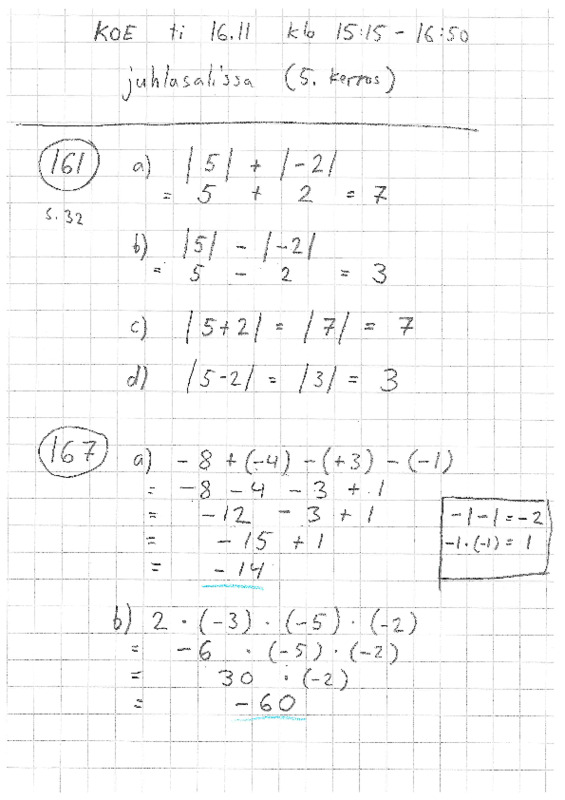 KOE ti 16.11 klo 15:15 - 16:50
juhlasalissa (5. kerros)
161 a) |5| + |-2|
= 5 + 2 = 7
s. 32
b) |5| - |-2|
= 5 - 2 = 3
c) |5+2| = |7| = 7
d) |5-2| = |3| = 3
167 a) -8 + (-4) - (+3) - (-1)
= -8 - 4 - 3 + 1
= -12 - 3 + 1
= -15 + 1
= -14
-1 - 1 = -2
-1 · (-1) = 1
b) 2 · (-3) · (-5) · (-2)
= -6 · (-5) · (-2)
= 30 · (-2)
= -60